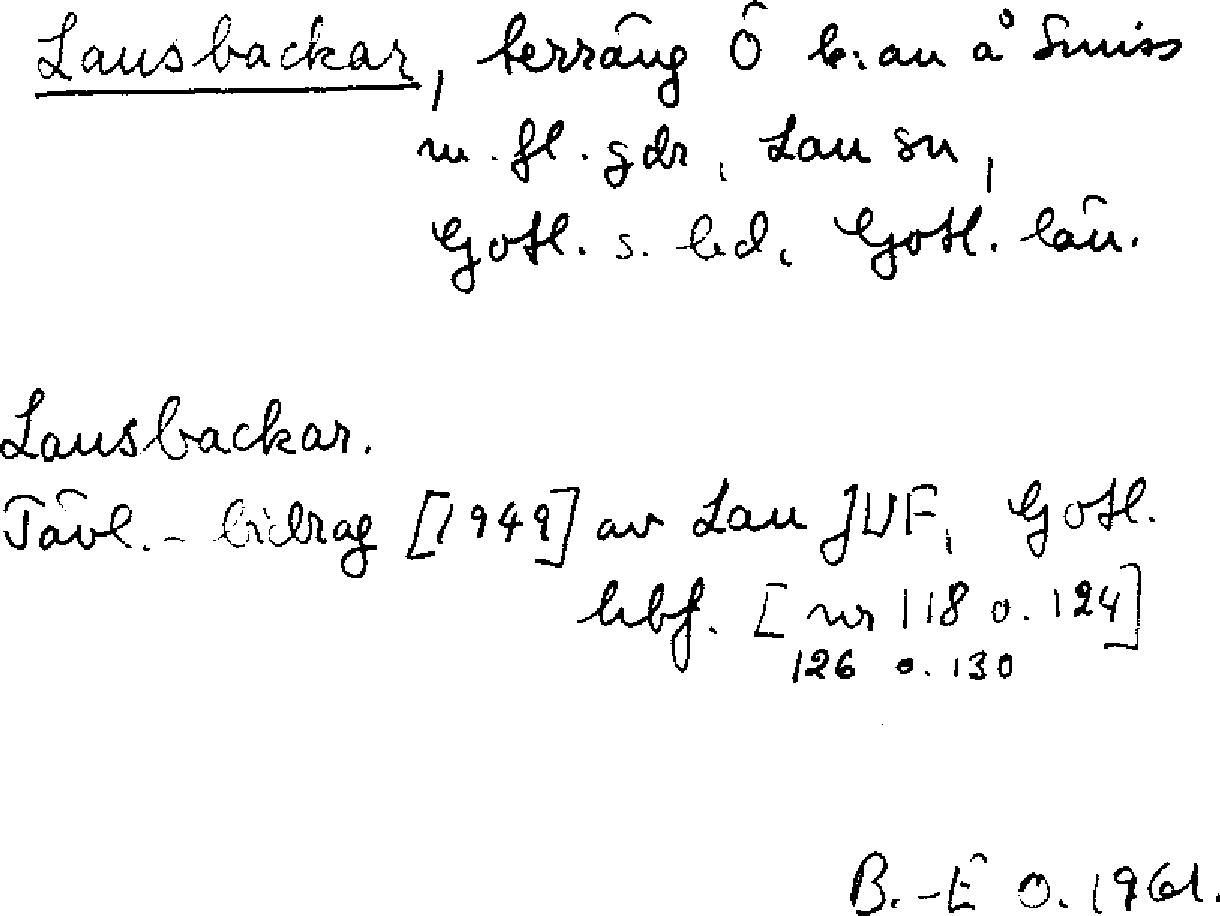 Lausbackar, terräng Ö b:an å Smiss
m. fl. gdr, Lau sn,
Gotl. s. hd, Gotl. län.
Lausbackar.
Tävl.-bidrag [1949] av Lau JUF, Gotl.
hbf. [nr 118 o. 124]
126 o. 130
B.-E O. 1961.